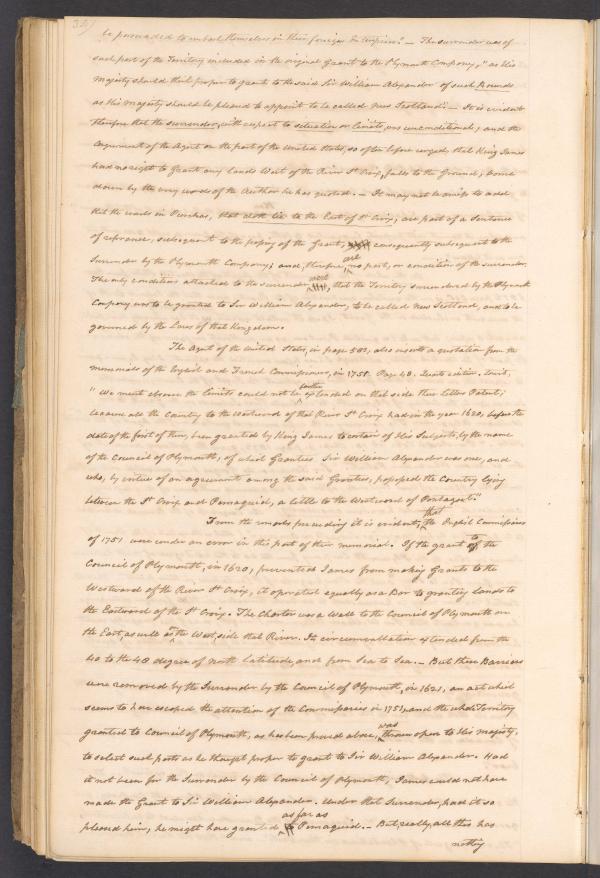 be persuaded to embark themselves in their foreign Enterprises." — The surrender was of
such part of the Territory included in the original Grant to the Plymouth Company, "as His
Majesty should think proper to grant to the said Sir William Alexander of such Bounds
as His Majesty should be pleased to appoint to be called New Scotland." — It is evident
therefore that the surrender, with respect to situation or limits, was unconditional; and the
argument of the Agent on the part of the United States, so often before urged, that King James
had no right to Grant any lands West of the River St Croix, falls to the Ground, borne
down by the very words of the Author he has quoted. — It may not be amiss to add
that the words in Purchas, that doth lie to the East of St Croix, are part of a Sentence
of reference, subsequent to the passing of the Grant, consequently subsequent to the
Surrender by the Plymouth Company; and, therefore, are no part, or condition of the surrender.
The only conditions attached to the surrender were, that the Territory surrendered by the Plymouth
Company was to be granted to Sir William Alexander, to be called New Scotland, and to be
governed by the Laws of that Kingdom.
The Agent of the United States, in page 503, also inserts a quotation from the
memorials of the English and French Commissioners, in 1751. Page 40. Quarto edition. Towit,
"We must observe the limits could not be further extended on that side these letters Patent;
because all the Country to the Westward of that River St Croix had in the year 1620, before the
date of the first of them, been granted by King James to certain of His Subjects, by the name
of the Council of Plymouth, of which Grantees Sir William Alexander was one, and
who, by virtue of an agreement among the said Grantees, possessed the Country lying
between the St Croix and Pemaquid, a little to the Westward of Pentagoet."
From the remarks preceeding it is evident, that the English Commissaries
of 1751 were under an error in this part of their memorial. If the grant to the
Council of Plymouth, in 1620, prevented James from making Grants to the
Westward of the River St Croix, it operated equally as a Bar to granting lands to
the Eastward of the St Croix. The Charter was a Wall to the Council of Plymouth on
the East, as well as the West, side that River. Its circumvallation extended from the
40 to the 48 degree of North Latitude, and from Sea to Sea. — But these Barriers
were removed by the Surrender by the Council of Plymouth, in 1621, an act which
seems to have escaped the attention of the Commissaries in 1751, and the whole Territory
granted to Council of Plymouth, as has been proved above, was thrown open to His Majesty,
to select such parts as he thought proper to grant to Sir William Alexander. Had
it not been for the Surrender by the Council of Plymouth, James could not have
made the Grant to Sir William Alexander. Under that Surrender, had it so
pleased him, he might have granted as far as Pemaquid. — But really, all this has
nothing